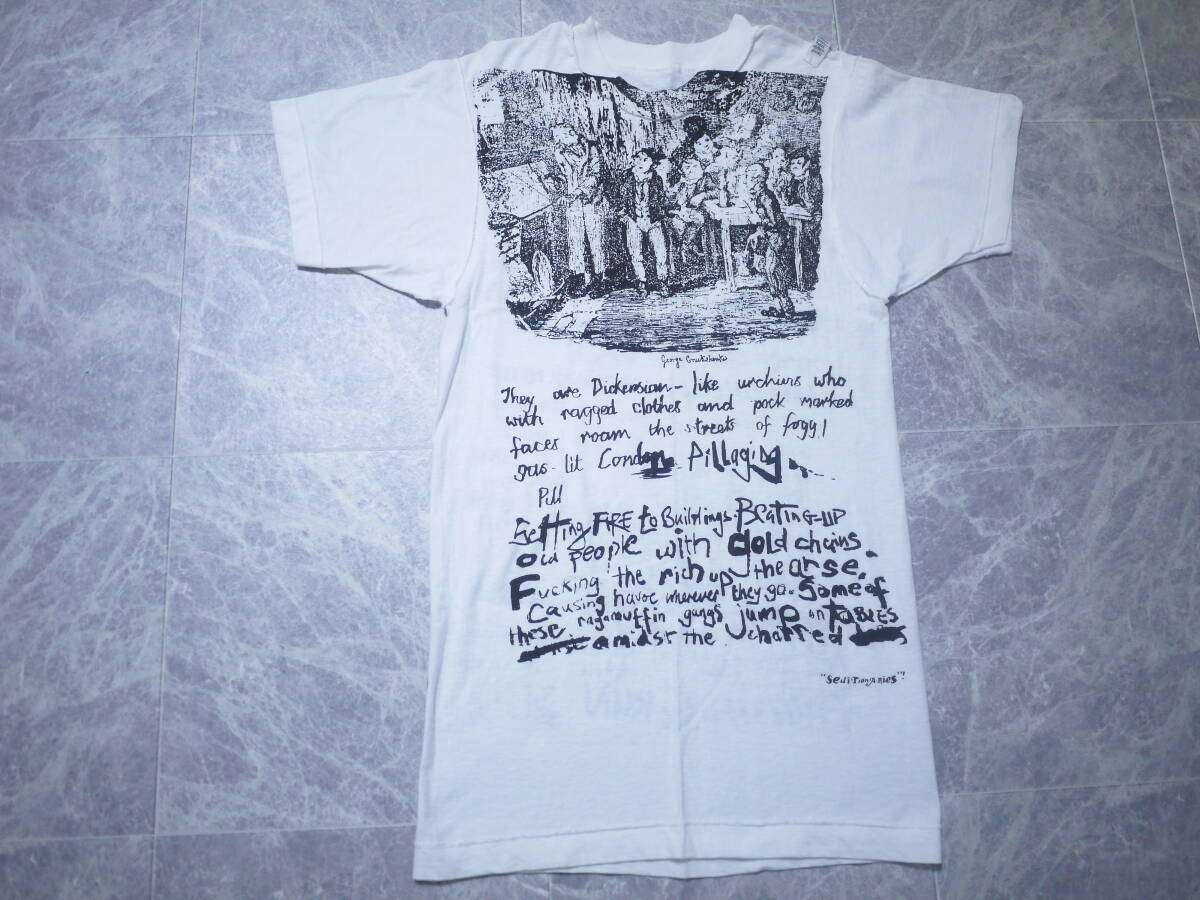 George Cruikshank
They are Dickensian - like urchins who
with ragged clothes and pock marked
faces roam the streets of foggy
gas-lit London Pillaging...
Pill
Setting FIRE to Buildings. BEATING-UP
old people with gold chains.
Fucking the rich up the arse.
Causing havoc wherever they go. Some of
these ragamuffin gangs jump on TABLES
amidst the charred
"SEdiTionAriES"!